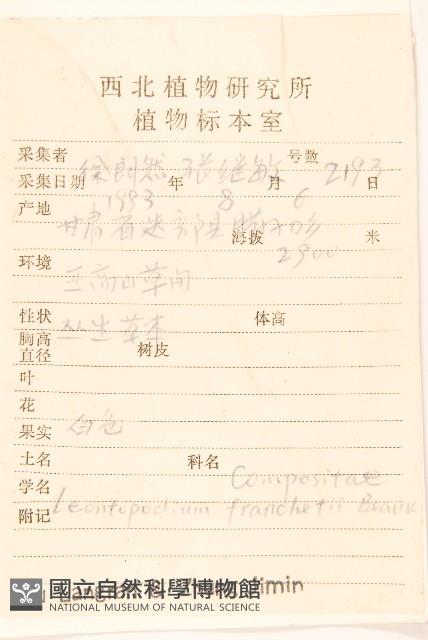 西北植物研究所
植物标本室
采集者 徐朗然 张继敏 号数 2193
采集日期 1993 年 8 月 6 日
产地 甘肃省迭部县腊子乡
海拔 2900 米
环境 亚高山草间
性状 丛生草本 体高
胸高直径 树皮
叶
花
果实 白色
土名 科名 Compositae
学名 Leontopodium franchetii Beauv
附记
國立自然科學博物館
NATIONAL MUSEUM OF NATURAL SCIENCE